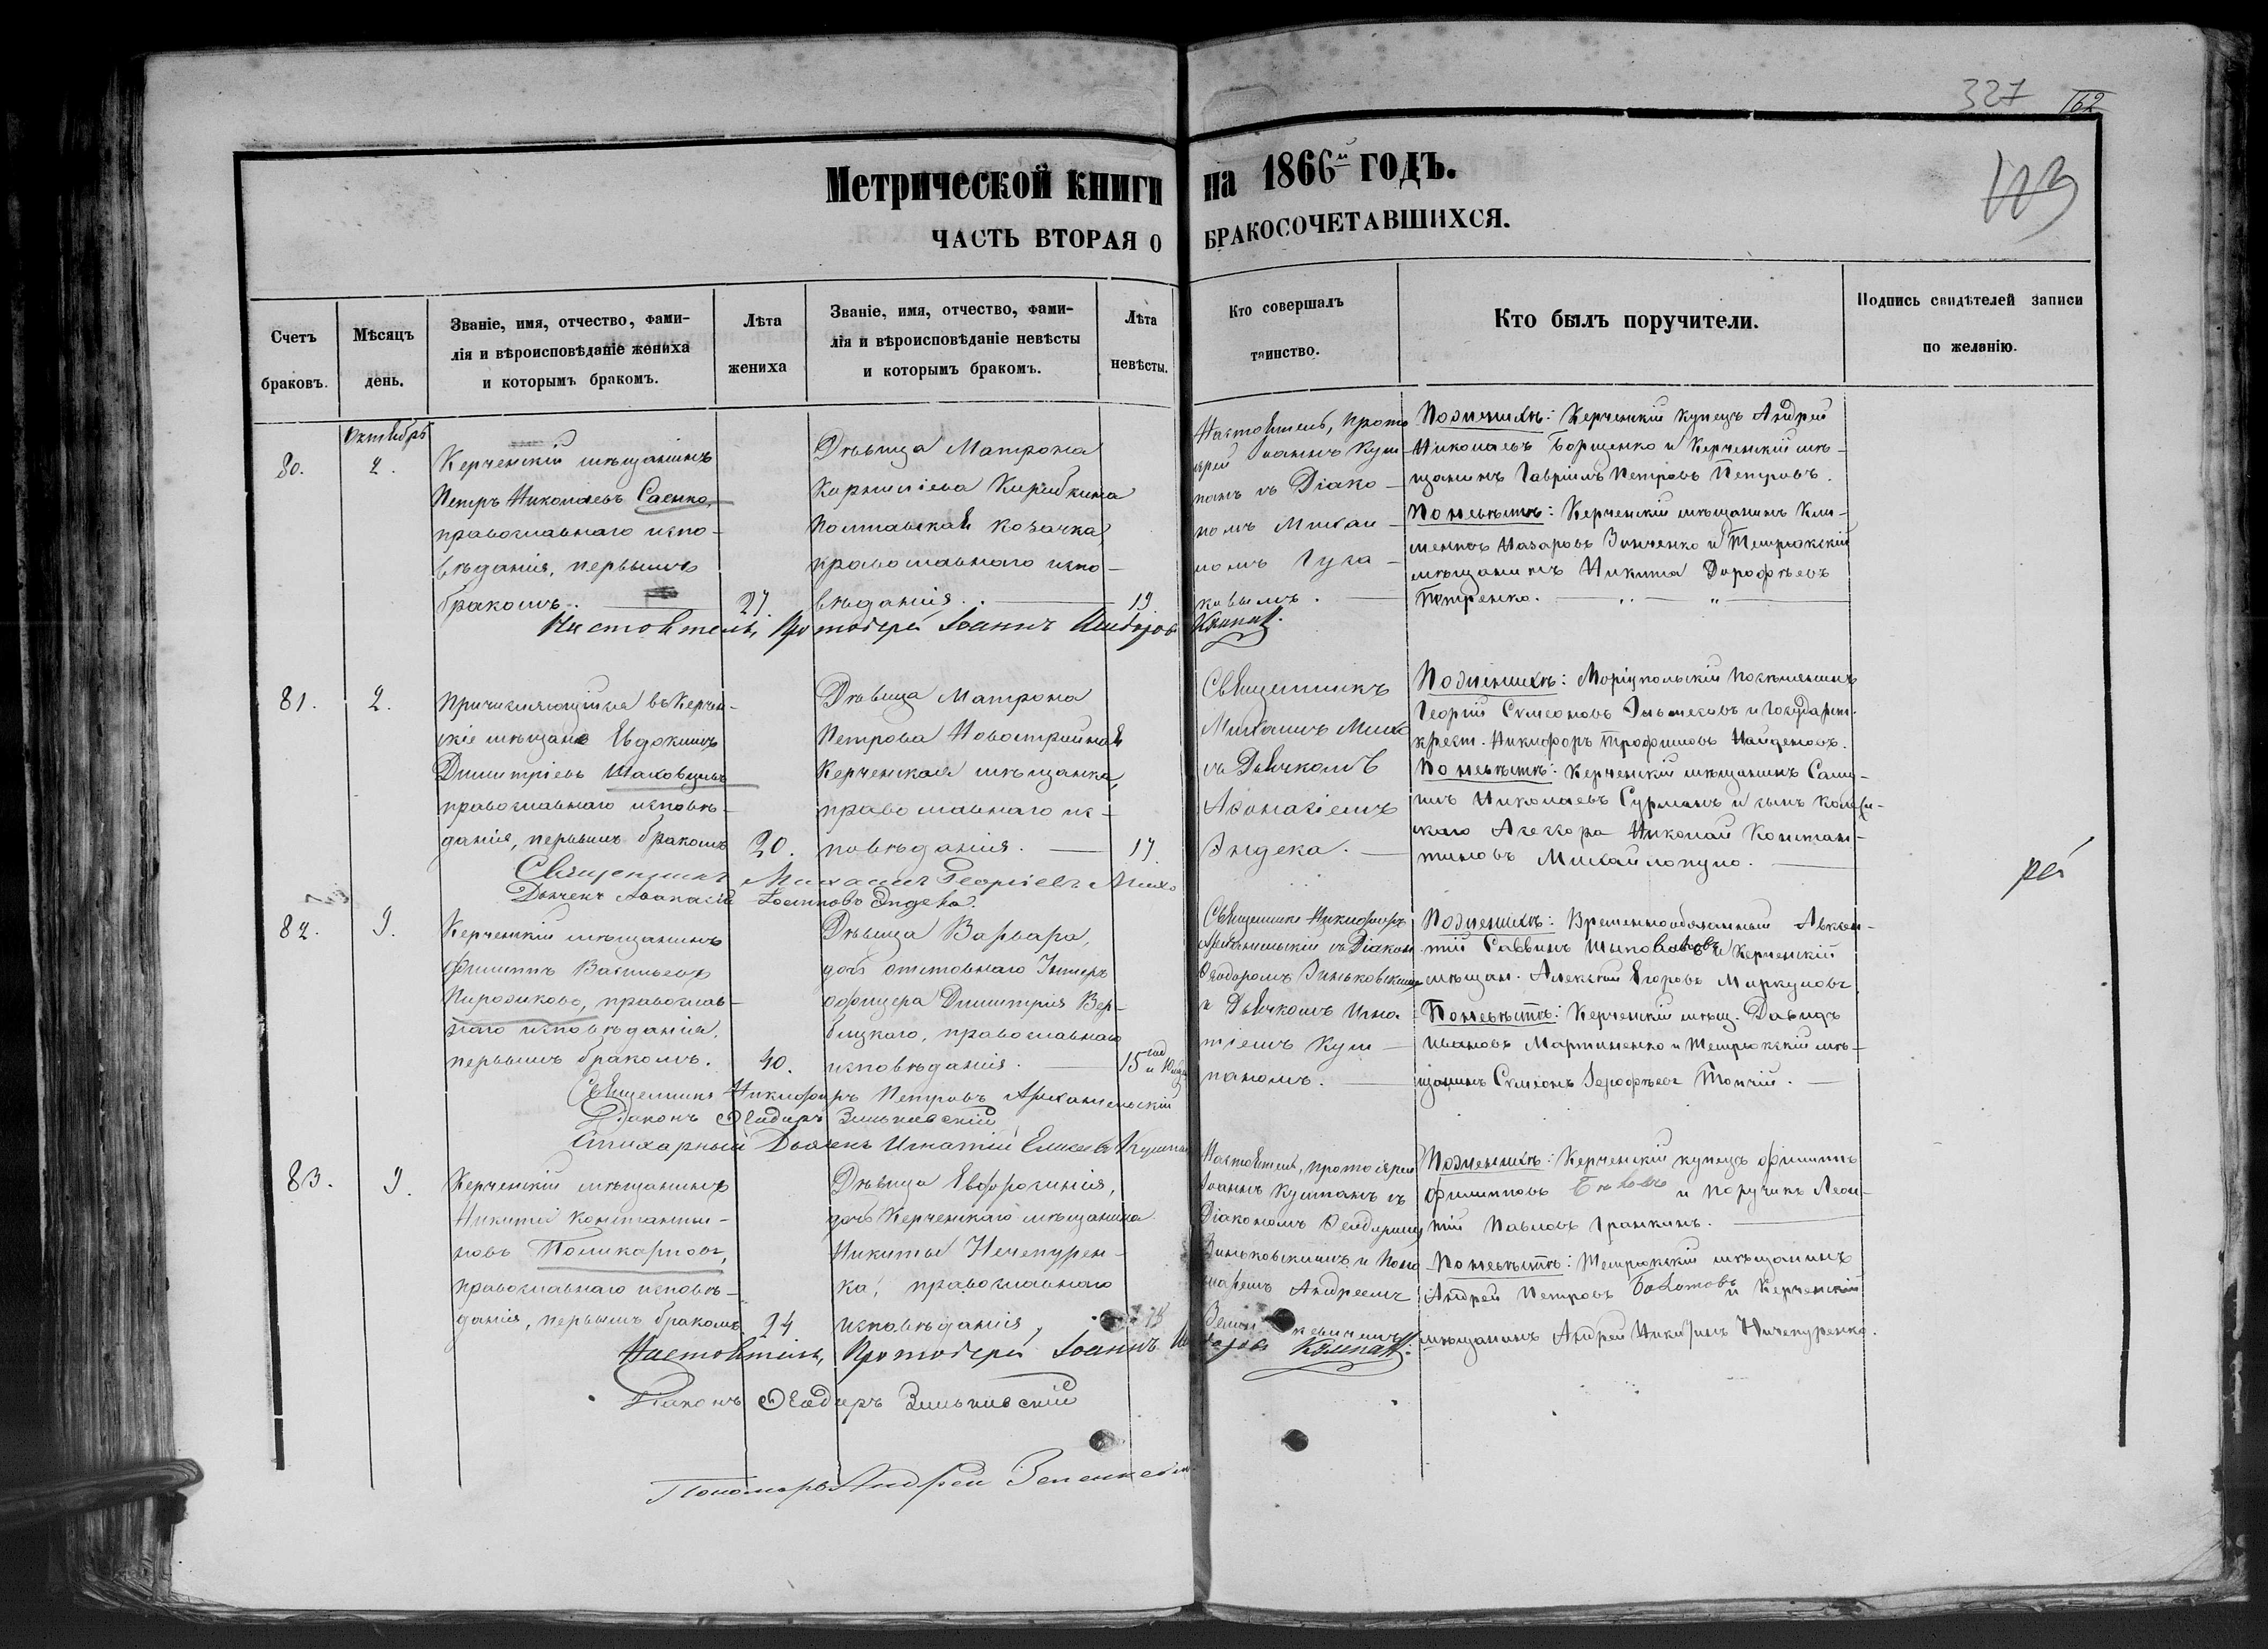 327 162
Метрической книги на 1866й годъ.
ЧАСТЬ ВТОРАЯ О БРАКОСОЧЕТАВШИХСЯ.
Счетъ браковъ.
Мѣсяцъ день.
Званіе, имя, отчество, фами-
лія и вѣроисповѣданіе жениха
и которымъ бракомъ.
Лѣта жениха
Званіе, имя, отчество, фами-
лія и вѣроисповѣданіе невѣсты
и которымъ бракомъ.
Лѣта невѣсты.
Кто совершалъ
таинство.
Кто былъ поручители.
Подпись свидѣтелей записи
по желанію.
80.
Октябрь
2.
Керченскій мѣщанинъ
Петръ Николаевъ Саенко,
православнаго испо-
вѣданія, первымъ
бракомъ.
27.
Дѣвица Матрона
Корниліева
Полтавская козачка,
православнаго испо-
вѣданія.
19.
Настоятель, прото
іерей Іоаннъ Кум
панъ съ Діако-
номъ Михаи-
ломъ Гуга-
ковымъ.
По женихѣ: Керченскій купецъ Андрей
Николаевъ Борщенко и Керченскій мѣ-
щанинъ Гавріилъ Петровъ Петровъ.
По невѣстѣ: Керченскій мѣщанинъ Кли-
ментъ Назаровъ Зинченко и Темрюкскій
мѣщанинъ Никита Дорофѣевъ
Петренко.
Настоятель, Протоіерей Іоаннъ Кумпанъ.
81.
2.
Причисляющійся въ Керчен-
скіе мѣщане Евдокимъ
Димитріевъ
православнаго исповѣ-
данія, первымъ бракомъ
20.
Дѣвица Матрона
Петрова
Керченская мѣщанка,
православнаго ис-
повѣданія.
17.
Священникъ
Михаилъ Мих
съ Дьячкомъ
Аѳанасіемъ
Эндека.
По женихѣ: Маріупольскій поселянинъ
Георгій Симеоновъ и государст.
крест. Никифоръ Трофимовъ Найденовъ.
По невѣстѣ: Керченскій мѣщанинъ Саму-
илъ Николаевъ Сурманъ и сынъ
Николай Констан-
тиновъ Михайлопуло.
Священникъ Михаилъ Георгіевъ
Дьячекъ Аѳанасій Іоанновъ Эндека.
82.
9.
Керченскій мѣщанинъ
Филиппъ Васильевъ
Пирожковъ, православ-
наго исповѣданія,
первымъ бракомъ.
40.
Дѣвица Варвара,
дочь отставнаго Унтеръ
офицера Димитрія Вер-
бицкаго, православнаго
исповѣданія.
15 год
Священникъ Никифоръ
Архангельскій съ Діакон
Ѳеодоромъ Зиньковскимъ
и Дьячкомъ Игна-
тіемъ Кум-
паномъ.
По женихѣ: Временнообязанный Авксен-
тій Саввинъ и Керченскій
мѣщан. Алексѣй Егоровъ Меркуловъ.
По невѣстѣ: Керченскій мѣщ. Давидъ
Ивановъ Мартыненко и Темрюкскій мѣ-
щанинъ Симеонъ Топчій.
Священникъ Никифоръ Петровъ Архангельскій
Діаконъ Ѳеодоръ Зиньковскій
Стихарный Дьячекъ Игнатій Кумпанъ
83.
9.
Керченскій мѣщанинъ
Никита Константи-
новъ Поликарповъ,
православнаго исповѣ-
данія, первымъ бракомъ
24
Дѣвица Евфросинія,
дочь Керченскаго мѣщанина
Никиты Нечепурен-
ка, православнаго
исповѣданія,
18
Настоятель, протоіерей
Іоаннъ Кумпанъ съ
Діакономъ Ѳеодоромъ
Зиньковскимъ и Поно
маремъ Андреемъ
По женихѣ: Керченскій купецъ Филиппъ
Филипповъ и поручикъ Леон-
тій Павловъ Гранкинъ.
По невѣстѣ: Темрюкскій мѣщанинъ
Андрей Петровъ и Керченскій
мѣщанинъ Андрей Никитинъ Ничепуренко.
Настоятель, Протоіерей Іоаннъ Кумпанъ.
Діаконъ Ѳеодоръ Зиньковскій
Пономарь Андрей